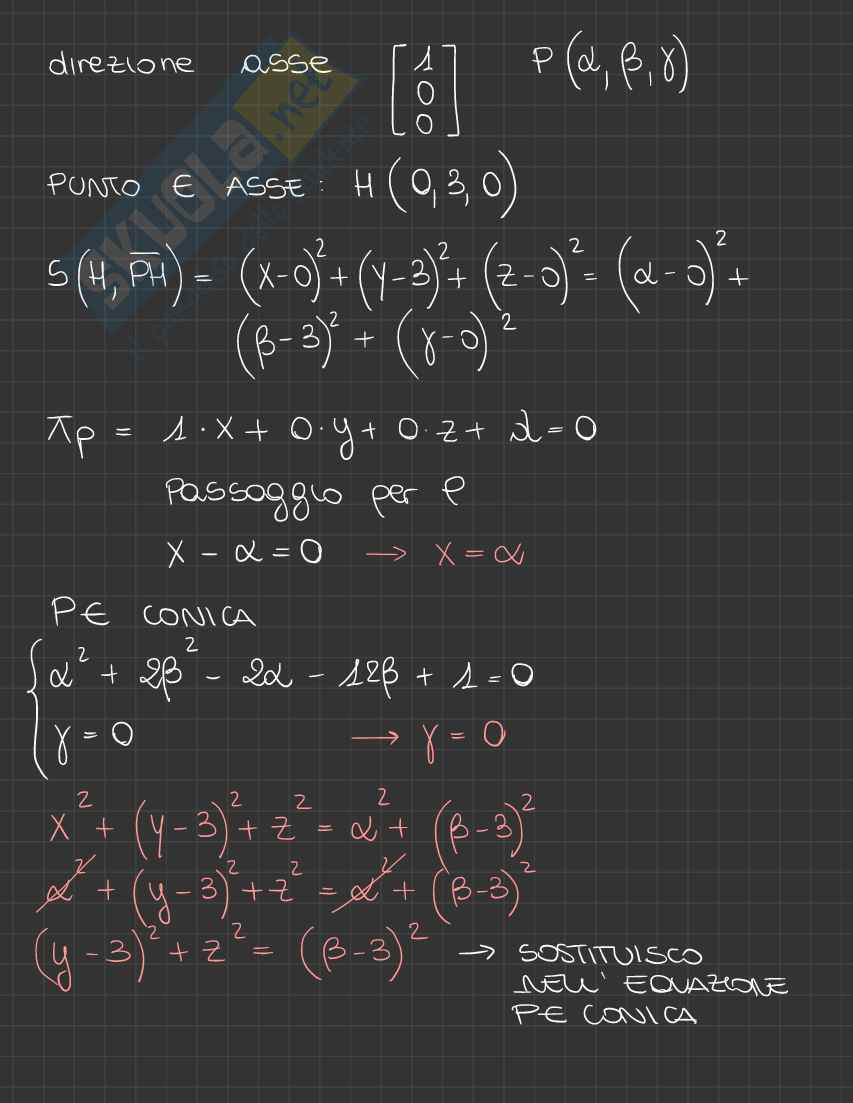 direzione asse [1 0 0] P(α, β, γ)
PUNTO ∈ ASSE: H(0, 3, 0)
S(H, P̅H̅) = (x-0)² + (y-3)² + (z-0)² = (α-0)² +
(β-3)² + (γ-0)²
πp = 1·x + 0·y + 0·z + d = 0
Passaggio per P
x - α = 0 → x = α
P∈ CONICA
α² + 2β² - 2α - 12β + 1 = 0
γ = 0 → γ = 0
x² + (y-3)² + z² = α² + (β-3)²
α² + (y-3)² + z² = α² + (β-3)²
(y-3)² + z² = (β-3)² → SOSTITUISCO
NELL' EQUAZIONE
P∈ CONICA
SKUOLA.net